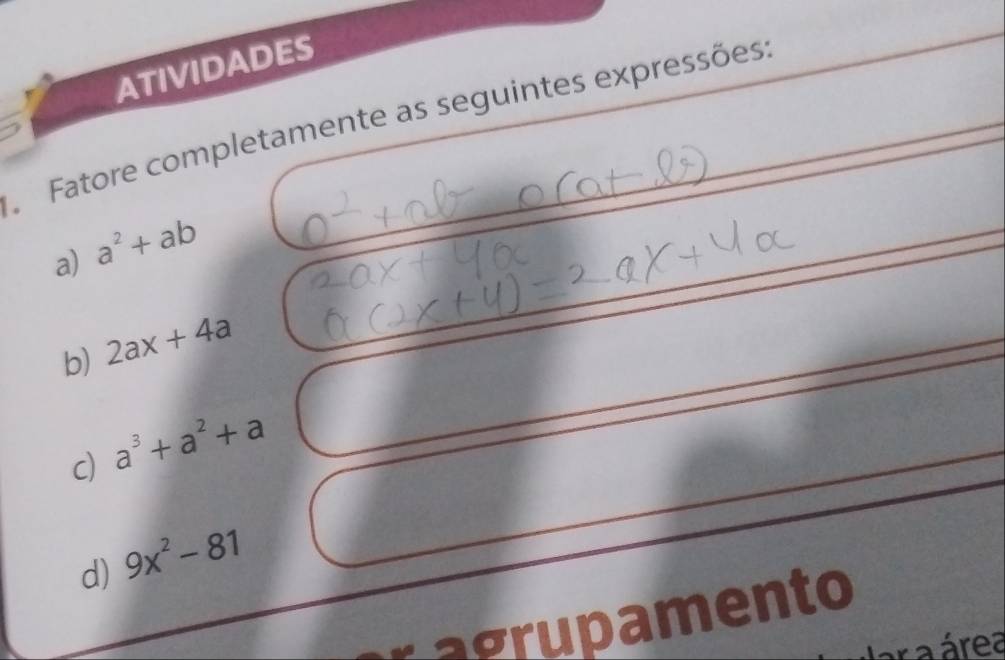 ATIVIDADES
1. Fatore completamente as seguintes expressões:
a) a² + ab
a² + ab a(a+b)
b) 2ax + 4a
2ax + 4a
a(2x+4) = 2ax + 4a
c) a³ + a² + a
d) 9x² – 81
agrupamento
a área